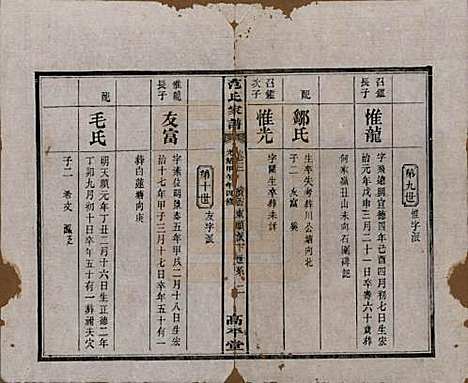 第九世
惟字派
召鑑
長子
惟龍
字飛德明宣德四年己酉四月初七日生宏
治十年丁巳三月二十一日卒壽六十九葬
何家嶺丑山未向石圍碑記
配
鄒氏
生卒失考葬川公塘向北
子二 友富 
召鑑
次子
惟光
字 生卒葬未詳
范氏家譜
卷二
東 下世系
二
高平堂
第十世
友字派
惟龍
長子
友富
字素位明景泰五年甲戌二月十八日生宏
治十七年甲子三月十七日卒年五十有一
葬白蓮塘向庚
配
毛氏
明天順元年丁丑二月十六日生正德二年
丁卯九月初十日卒年五十有一葬 天穴
子二